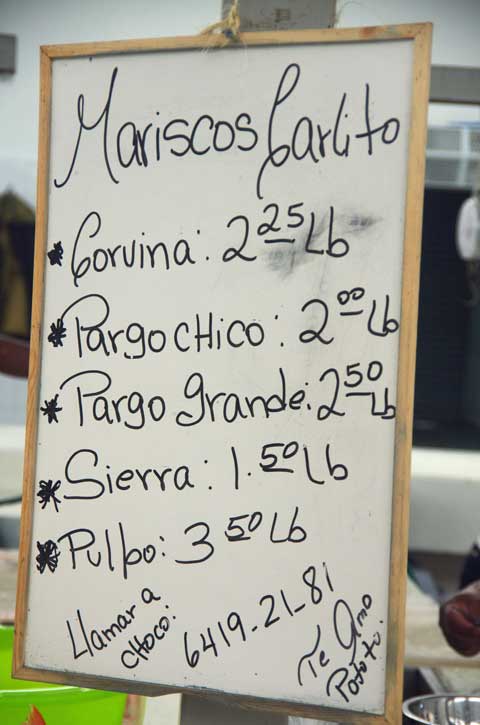 Mariscos Carlito
* Corvina: 2 25 Lb
* Pargo CHico: 2 00 Lb
* Pargo grande: 2 50 Lb
* Sierra: 1.50 Lb
* Pulpo: 3 50 Lb
Llamar a
CHoco:
6419-21-81
Te Amo